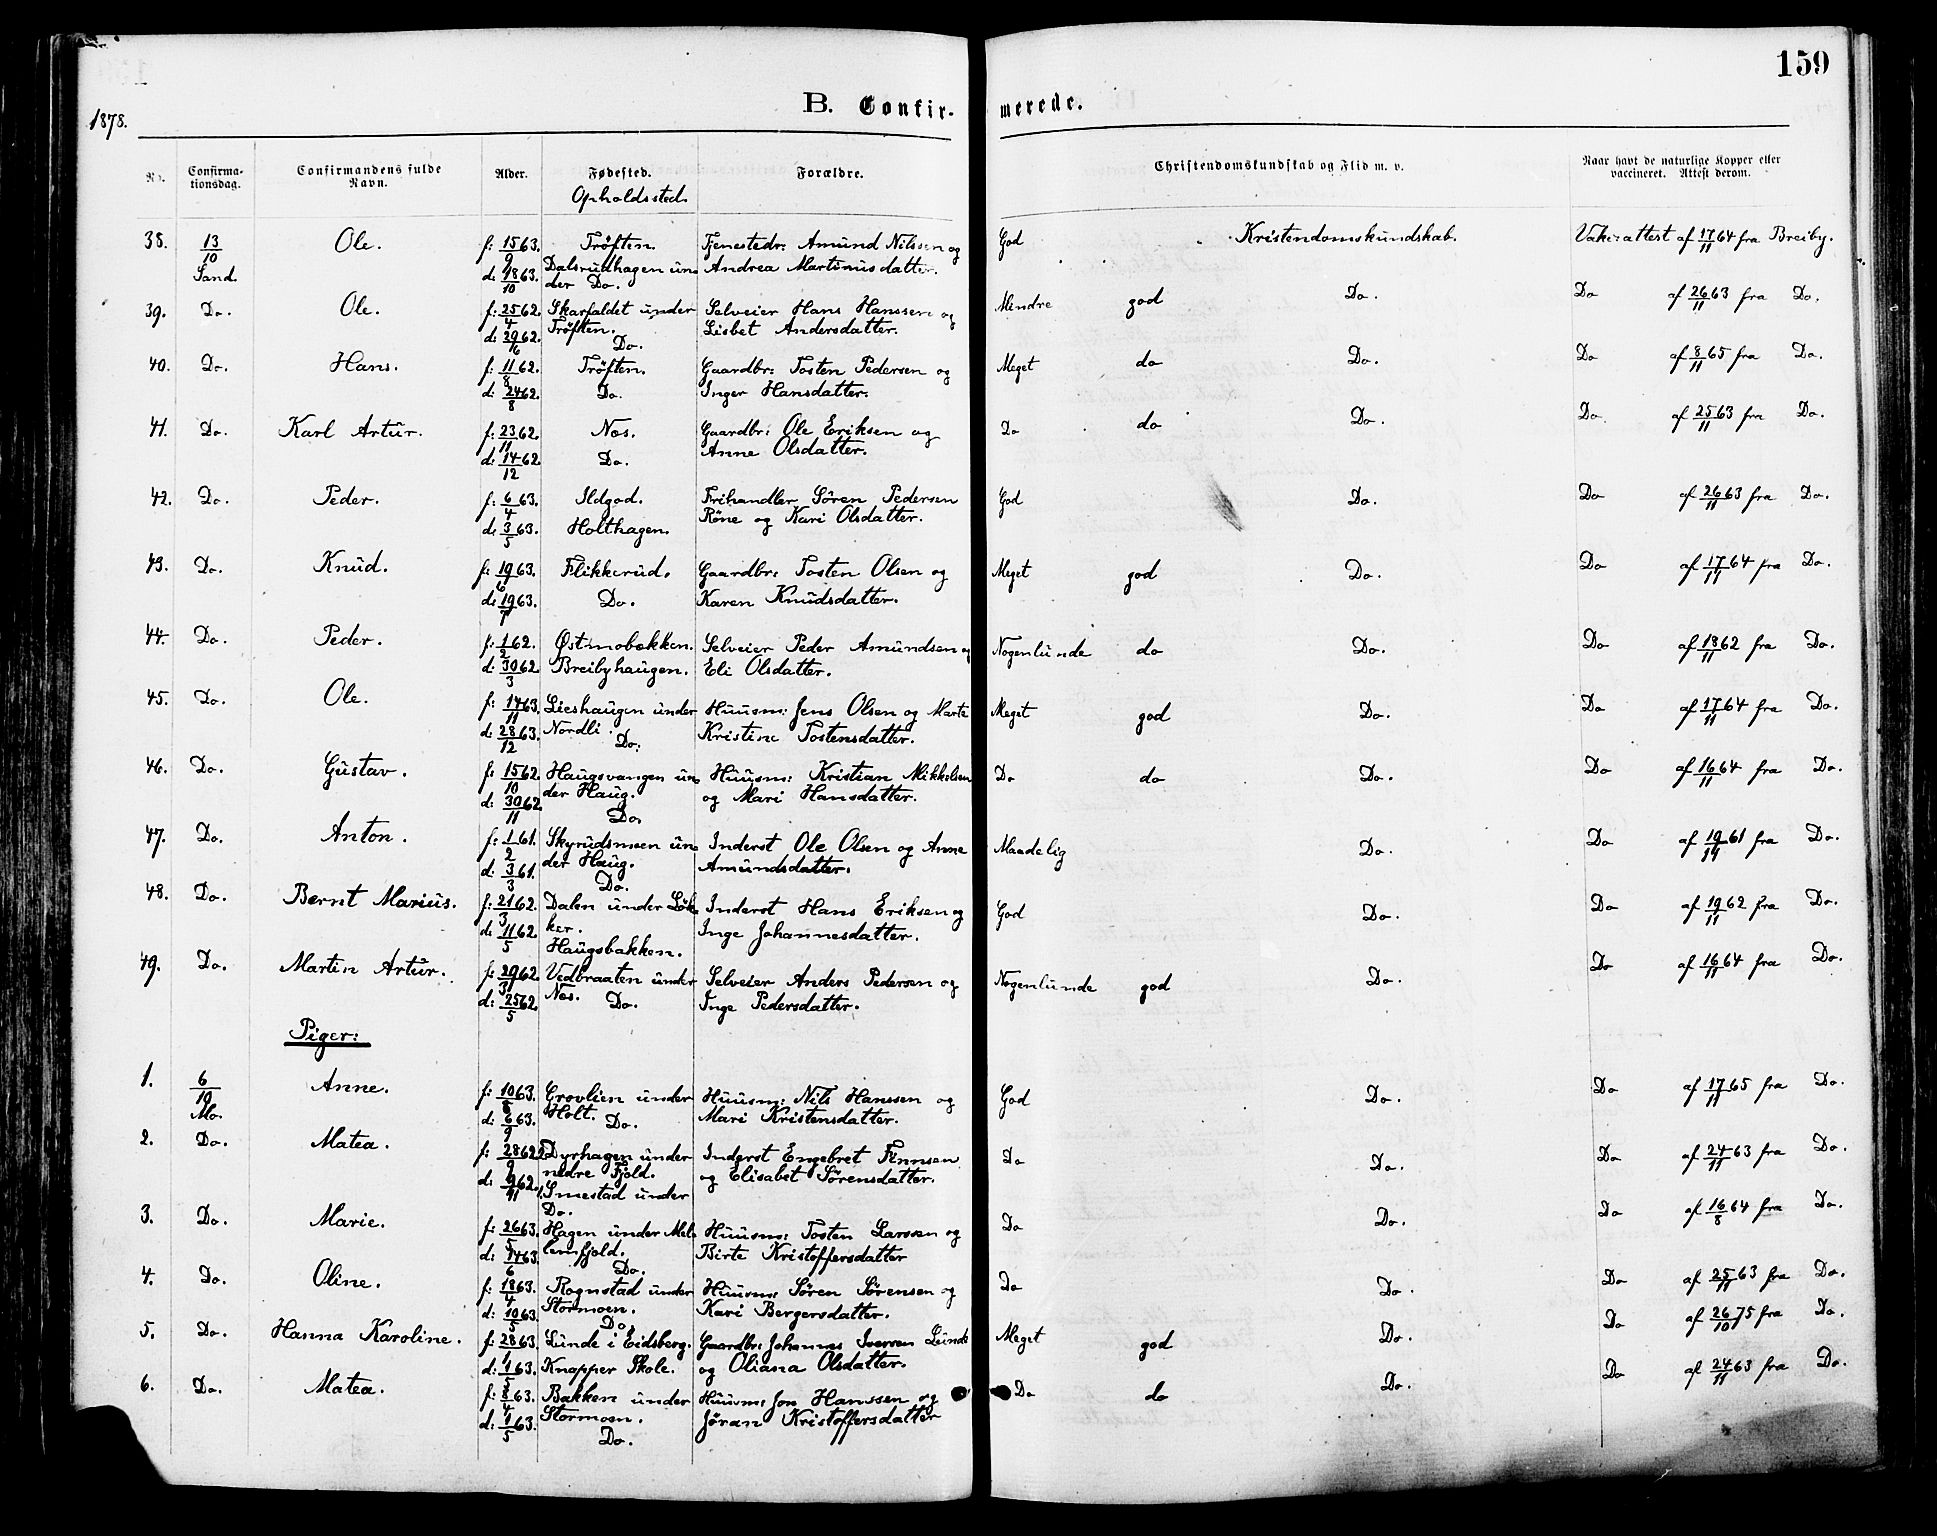 159
B. Confir- merede.
1878.
No. Confirma- tionsdag. Confirmandens fulde Navn. Alder. Fødested. Forældre. Christendomskundskab og Flid m. v. Naar havt de naturlige Kopper eller vaccineret. Attest derom.
Opholdssted.
38. 13/10 Ole. f: 15/9 63. Trøften. Tjenestedr: Amund Nilssen og God Kristendomskundskab. Vakc: attest af 17/11 64 fra Breiby.
Sand. d: 18/10 63. Dalsrudhagen un- Andrea Martinusdatter.
der Do.
39. Do. Ole. f: 25/4 62. Skarfaldet under Selveier Hans Hanssen og Mindre god Do. Do af 26/11 63 fra Do.
d: 29/6 62. Trøften. Lisbet Andersdatter.
Do.
40. Do. Hans. f: 11/8 62. Trøften. Gaardbr: Tosten Pedersen og Meget do Do. Do af 8/11 65 fra Do.
d: 24/8 62. Do. Inger Hansdatter.
41. Do. Karl Artur. f: 23/11 62. Nes. Gaardbr: Ole Eriksen og Do do Do. Do. af 25/11 63 fra Do.
d: 14/12 62. Do. Anne Olsdatter.
42. Do. Peder. f: 6/4 63. Ildgod. Frihandler Søren Pedersen God Do. Do af 26/11 63 fra Do.
d: 3/5 63. Holthagen. Røne og Kari Olsdatter.
43. Do. Knud. f: 19/6 63. Flikkerud. Gaardbr: Tosten Olsen og Meget god Do. Do af 17/11 64 fra Do.
d: 19/7 63. Do. Karen Knudsdatter.
44. Do. Peder. f: 1/2 62. Østmobakken. Selveier Peder Amundsen og Nogenlunde do Do. Do af 18/11 62 fra Do.
d: 30/3 62 Breibyhaugen. Eli Olsdatter.
45. Do. Ole. f: 14/11 63. Lieshaugen under Huusm: Jens Olsen og Marte Meget god Do. Do af 17/11 64 fra Do.
d: 28/12 63. Nordli. Kristine Tostensdatter.
Do.
46. Do. Gustav. f: 15/10 62. Haugsvangen un- Huusm: Kristian Mikkelsen Do do Do. Do af 16/11 64 fra Do.
d: 30/11 62. der Haug. og Mari Hansdatter.
Do.
47. Do. Anton. f: 1/2 61. Skyrudsmoen un- Inderst Ole Olsen og Anne Maadelig Do. Do af 19/11 61 fra Do.
d: 3/3 61. der Haug. Amundsdatter.
Do.
48. Do. Bernt Marius. f: 21/3 62. Dalen under Løk- Inderst Hans Eriksen og God Do. Do af 19/11 62 fra Do.
d: 11/5 62. ker. Inge Johannesdatter.
Haugsbakken.
49. Do. Martin Artur. f: 29/3 62. Vedbraaten under Selveier Anders Pedersen og Nogenlunde god Do. Do af 16/11 64 fra Do.
d: 25/5 62. Nes. Do. Inge Pedersdatter.
Piger:
1. 6/10 Anne. f: 10/8 63. Grovlien under Huusm: Nils Hanssen og God Do. Do af 17/11 65 fra Do.
Mo. d: 6/9 63. Holt. Do. Mari Kristensdatter.
2. Do. Matea. f: 28/9 62. Dyrhagen under Inderst Engebret Finnsen Do Do. Do af 24/11 63 fra Do.
d: 9/11 62. nedre Fjeld. og Elisabet Sørensdatter.
Smestad under
Do.
3. Do. Marie. f: 26/5 63. Hagen under Mel- Huusm: Tosten Larssen og Do Do. Do af 16/8 64 fra Do.
d: 14/6 63. lemfjeld. Birte Kristoffersdatter
Do.
4. Do. Oline. f: 18/4 63. Rognstad under Huusm: Søren Sørensen og Do Do. Do af 25/11 63 fra Do.
d: 10/5 63. Stormoen. Kari Bergersdatter.
Do.
5. Do. Hanna Karoline. f: 28/1 63. Lunde i Eidsberg. Gaardbr: Johannes Iversen Lunde Meget god Do. Do af 26/10 75 fra Do.
d: 1/5 63. Knapper Skole. og Oliana Olsdatter.
6. Do. Matea. f: 8/4 63. Bakken under Huusm: Jon Hanssen og Do do Do. Do af 24/11 63 fra Do.
d: 1/5 63. Stormoen. Jøran Kristoffersdatter
Do.